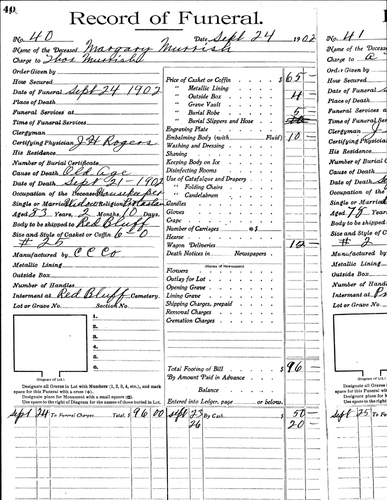 40
Record of Funeral.
No. 40 Date Sept 24 1902
Name of the Deceased Margary Murrish
Charge to Thos Murrish
Order Given by
How Secured
Date of Funeral Sept 24 1902
Place of Death
Funeral Services at
Time of Funeral Services
Clergyman
Certifying Physician J H Rogers
His Residence
Number of Burial Certificate
Cause of Death Old Age
Date of Death Sept 21 - 1902
Occupation of the Deceased Housekeeper
Single or Married Widow Religion
Aged 83 Years, 2 Months, 10 Days.
Body to be shipped to Red Bluff
Size and Style of Casket or Coffin 6-0
# 25
Manufactured by C C Co
Metallic Lining
Outside Box
Number of Handles
Interment at Red Bluff Cemetery.
Lot or Grave No. Section No.
1.
2.
3.
4.
5.
6.
(Diagram of Lot.)
Designate all Graves in Lot with Numbers (1, 2, 3, 4, etc.), and mark
space for this Funeral with a cross (+).
Designate place for Monument with a small square (□).
Use space to the right of Diagram for the names of those buried in Lot.
Price of Casket or Coffin $ 65 -
" Metallic Lining
" Outside Box 4 -
" Grave Vault
" Burial Robe 5
" Burial Slippers and Hose
Engraving Plate
Embalming Body (with Fluid) 10 -
Washing and Dressing
Shaving
Keeping Body on Ice
Disinfecting Rooms
Use of Catafalque and Drapery
" Folding Chairs
" Candelabrum
Candles
Gloves
Crape
Number of Carriages @ $
Hearse
Wagon Deliveries 12 -
Death Notices in Newspapers
(Names of Newspapers)
Flowers
Outlay for Lot
Opening Grave
Lining Grave
Shipping Charges, prepaid
Removal Charges
Cremation Charges
Total Footing of Bill $ 96 -
By Amount Paid in Advance
Balance
Entered into Ledger, page or below.
Sept 24 To Funeral Charges Total, $ 96 00 Sept 23 By Cash $ 50 -
26 20 -
No. 41
Name of the Deceased
Charge to
Order Given by
How Secured
Date of Funeral
Place of Death
Funeral Services
Time of Funeral
Clergyman
Certifying Physician
His Residence
Number of Burial
Cause of Death
Date of Death
Occupation of the
Single or Married
Aged 75 Years
Body to be shipped
Size and Style of
# 2
Manufactured by
Metallic Lining
Outside Box
Number of Handles
Interment at
Lot or Grave No.
(Diagram of Lot.)
Designate all Graves
space for this Funeral
Designate place for
Use space to the right
Sept 25 To Fune